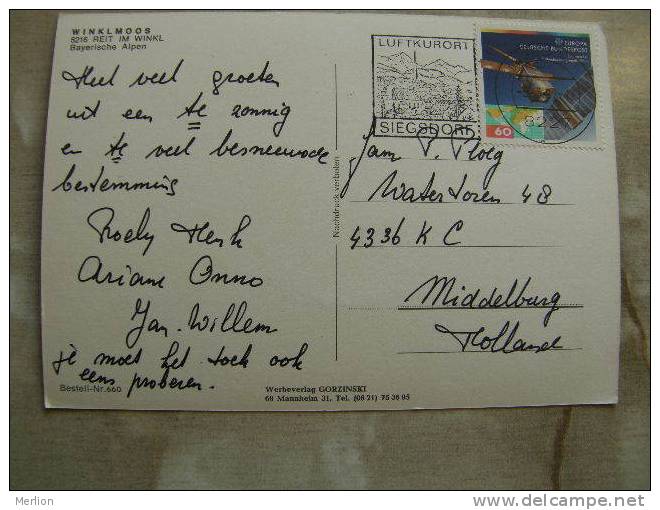 WINKLMOOS
8216 REIT IM WINKL
Bayerische Alpen
Heel veel groeten
uit een te zonnig
en te veel besneeuwde
bestemming
Roely Henk
Ariane Onno
Jan-Willem
je moet het toch ook
eens proberen.
Bestell-Nr. 660
Nachdruck verboten
Werbeverlag GORZINSKI
68 Mannheim 31, Tel. (06 21) 75 36 95
LUFTKURORT
SIEGSDORF
EUROPA
DEUTSCHE BUNDESPOST
60
Fam. P. Ploeg
Watertoren 48
4336 K C
Middelburg
Holland
Merlion
http://www.delcampe.net